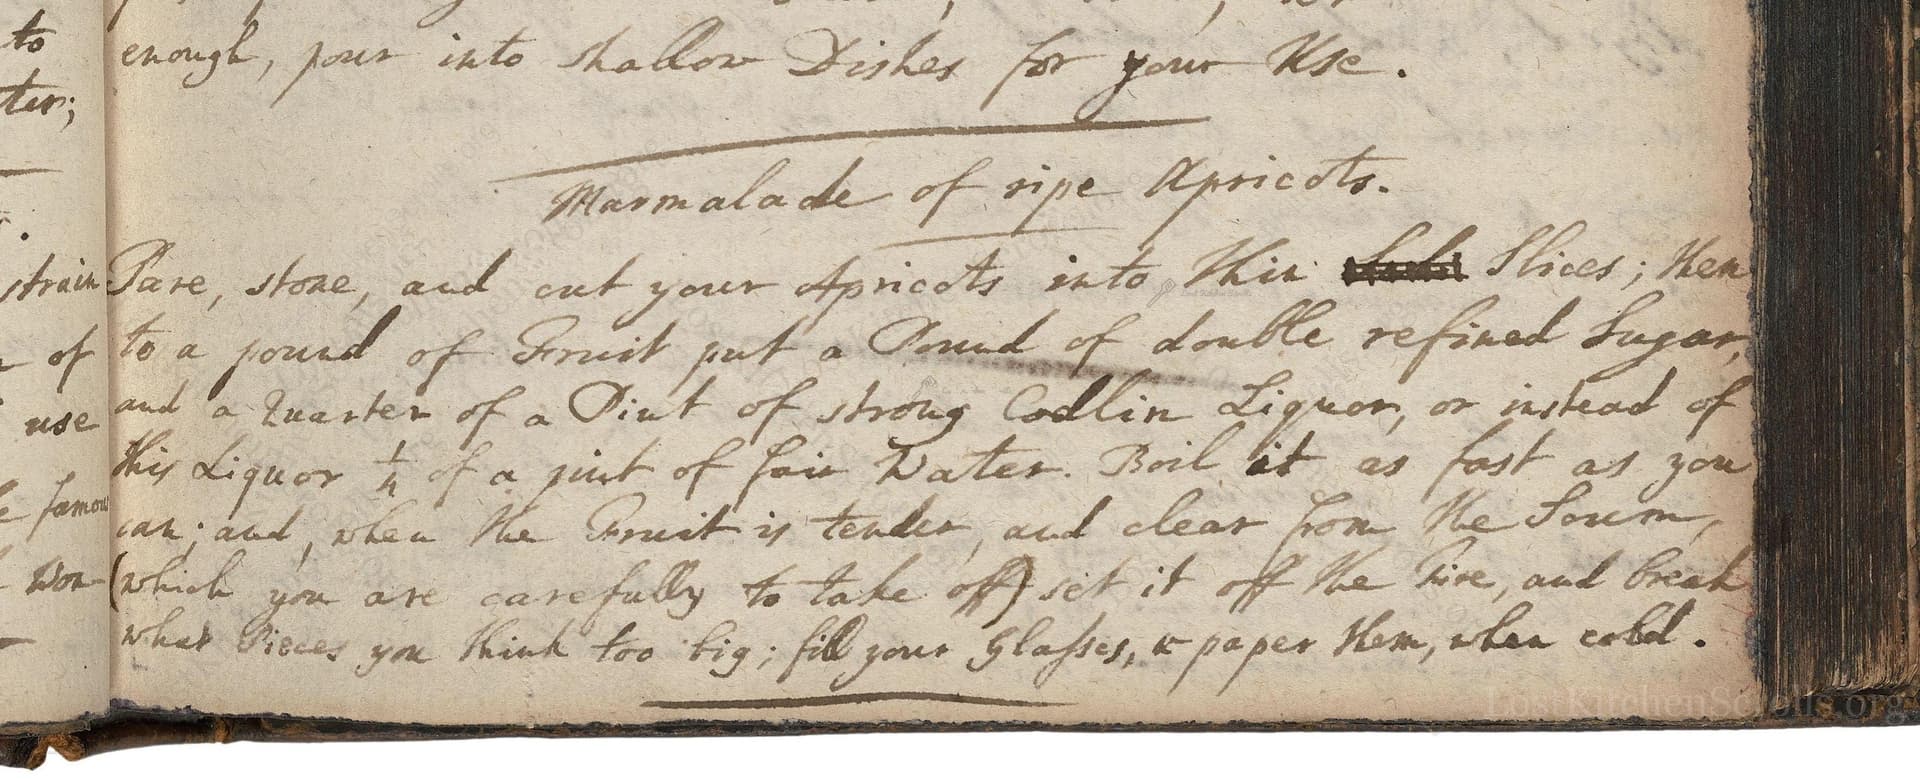 to
ter;
strain
of
use
famou
Won-
enough, pour into shallow Dishes for your Use.
Marmalade of ripe Apricots.
Pare, stone, and cut your Apricots into thin Slices; then
to a pound of Fruit put a Pound of double refined Sugar,
and a Quarter of a Pint of strong Codlin Liquor, or instead of
this Liquor 1/4 of a pint of fair Water. Boil it as fast as you
can; and, when the Fruit is tender, and clear from the Scum,
(which you are carefully to take off) set it off the Fire, and break
what Pieces you think too big; fill your Glasses, & paper them, when cold.
LostKitchenScrolls.org